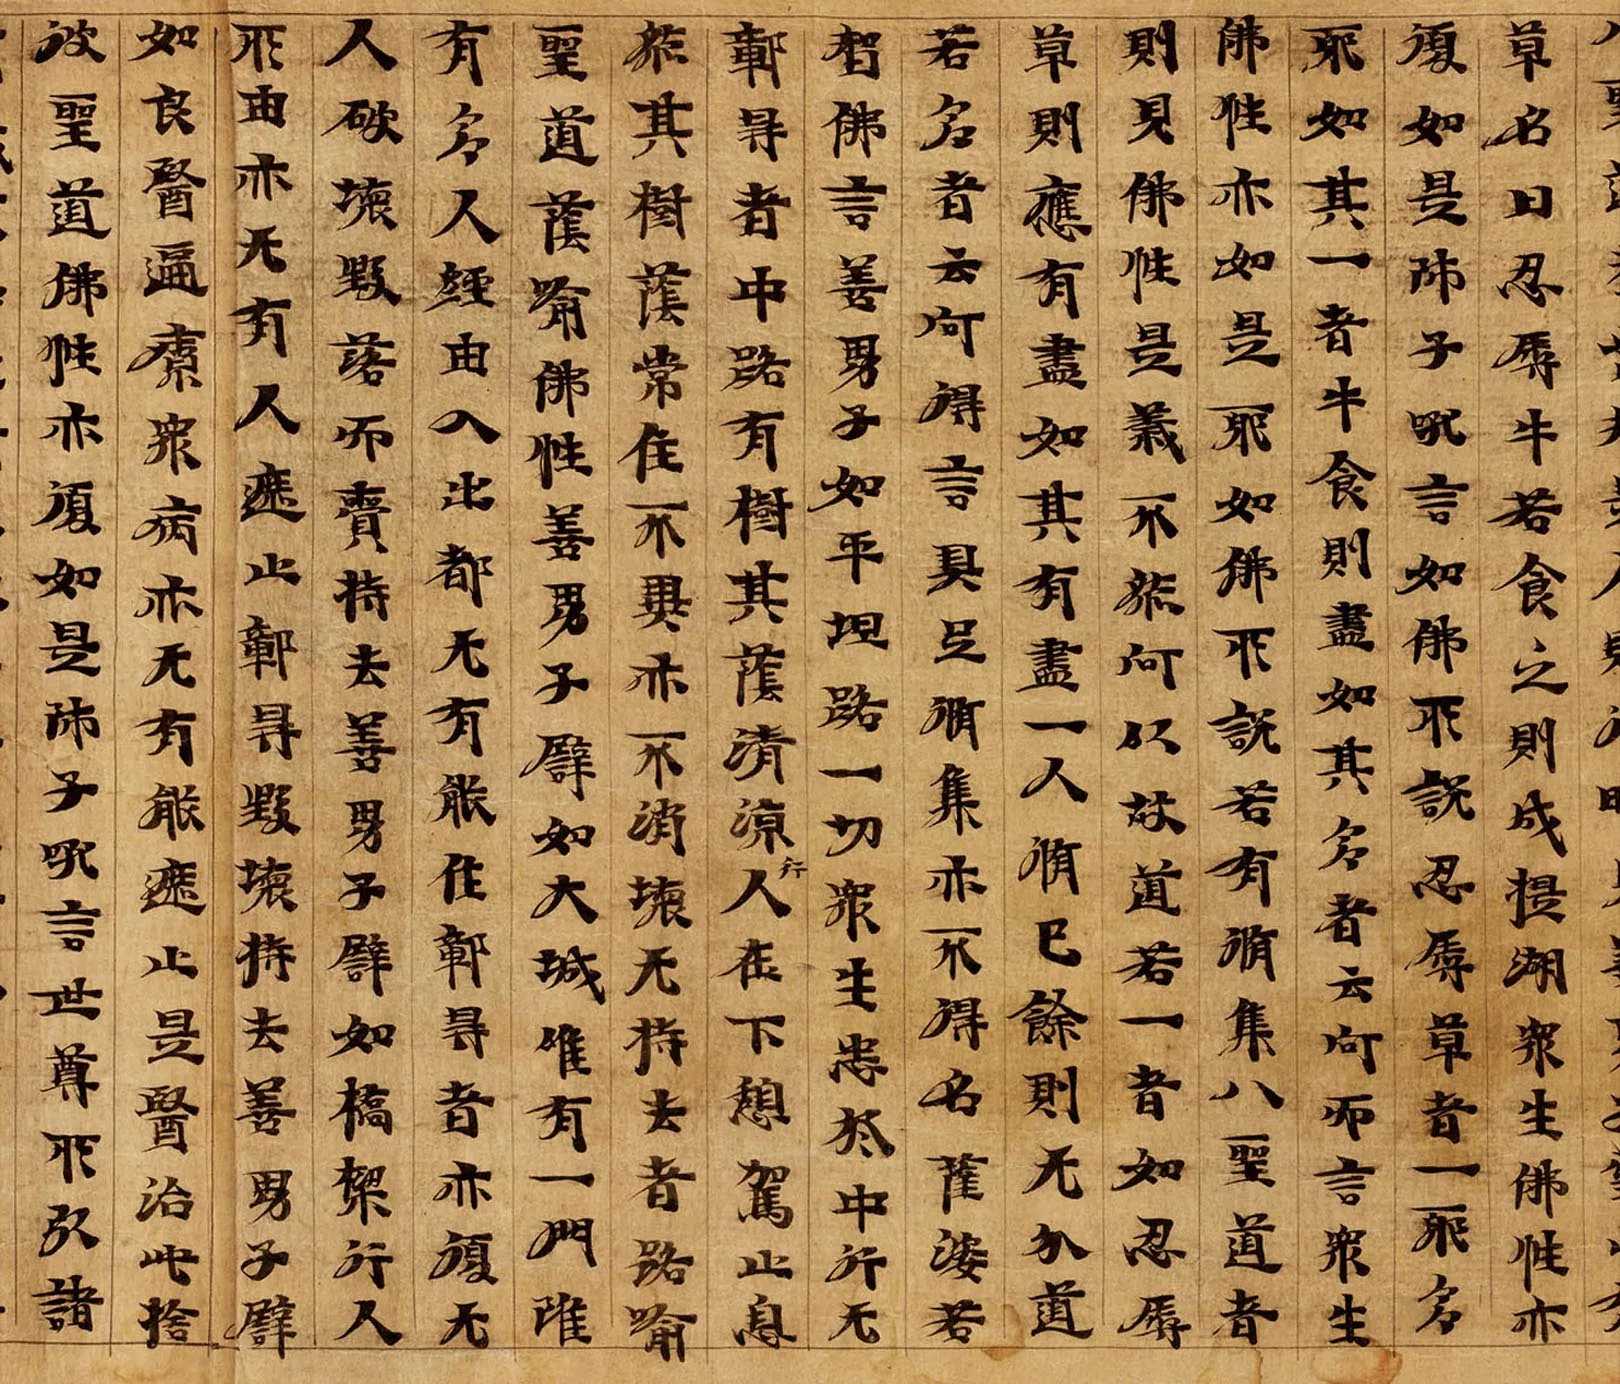 草名曰忍辱牛若食之則成提湖眾生佛性亦
復如是師子吼言如佛所說忍辱草者一耶多
耶如其一者牛食則盡如其多者云何而言眾生
佛性亦如是耶如佛所說若有脩集八聖道者
則見佛性是義不然何以故道若一者如忍辱
草則應有盡如其有盡一人脩已餘則无分道
若多者云何得言具足脩集亦不得名薩婆若
智佛言善男子如平坦路一切眾生悉於中行无
鄣㝵者中路有樹其蔭清涼行人在下憩駕止息
然其樹蔭常住不異亦不消壞无持去者路喻
聖道蔭喻佛性善男子譬如大城唯有一門雖
有多人經由入出都无有能住鄣㝵者亦復无
人破壞毀落而賫持去善男子譬如橋梁行人
所由亦无有人遮止鄣㝵毀壞持去善男子譬
如良醫遍療眾病亦无有能遮止是醫治此捨
彼聖道佛性亦復如是師子吼言世尊所引諸